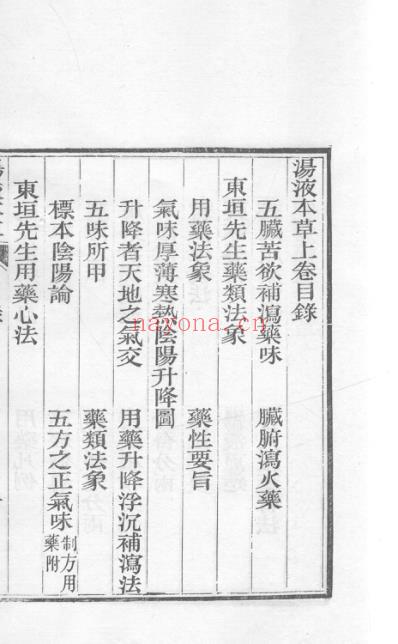 湯液本草上卷目錄
五臟苦欲補瀉藥味　臟腑瀉火藥
東垣先生藥類法象
用藥法象　藥性要旨
氣味厚薄寒熱陰陽升降圖
升降者天地之氣交　用藥升降浮沉補瀉法
五味所用　藥類法象
標本陰陽論　五方之正氣味制方用藥附
東垣先生用藥心法
nayona.cn